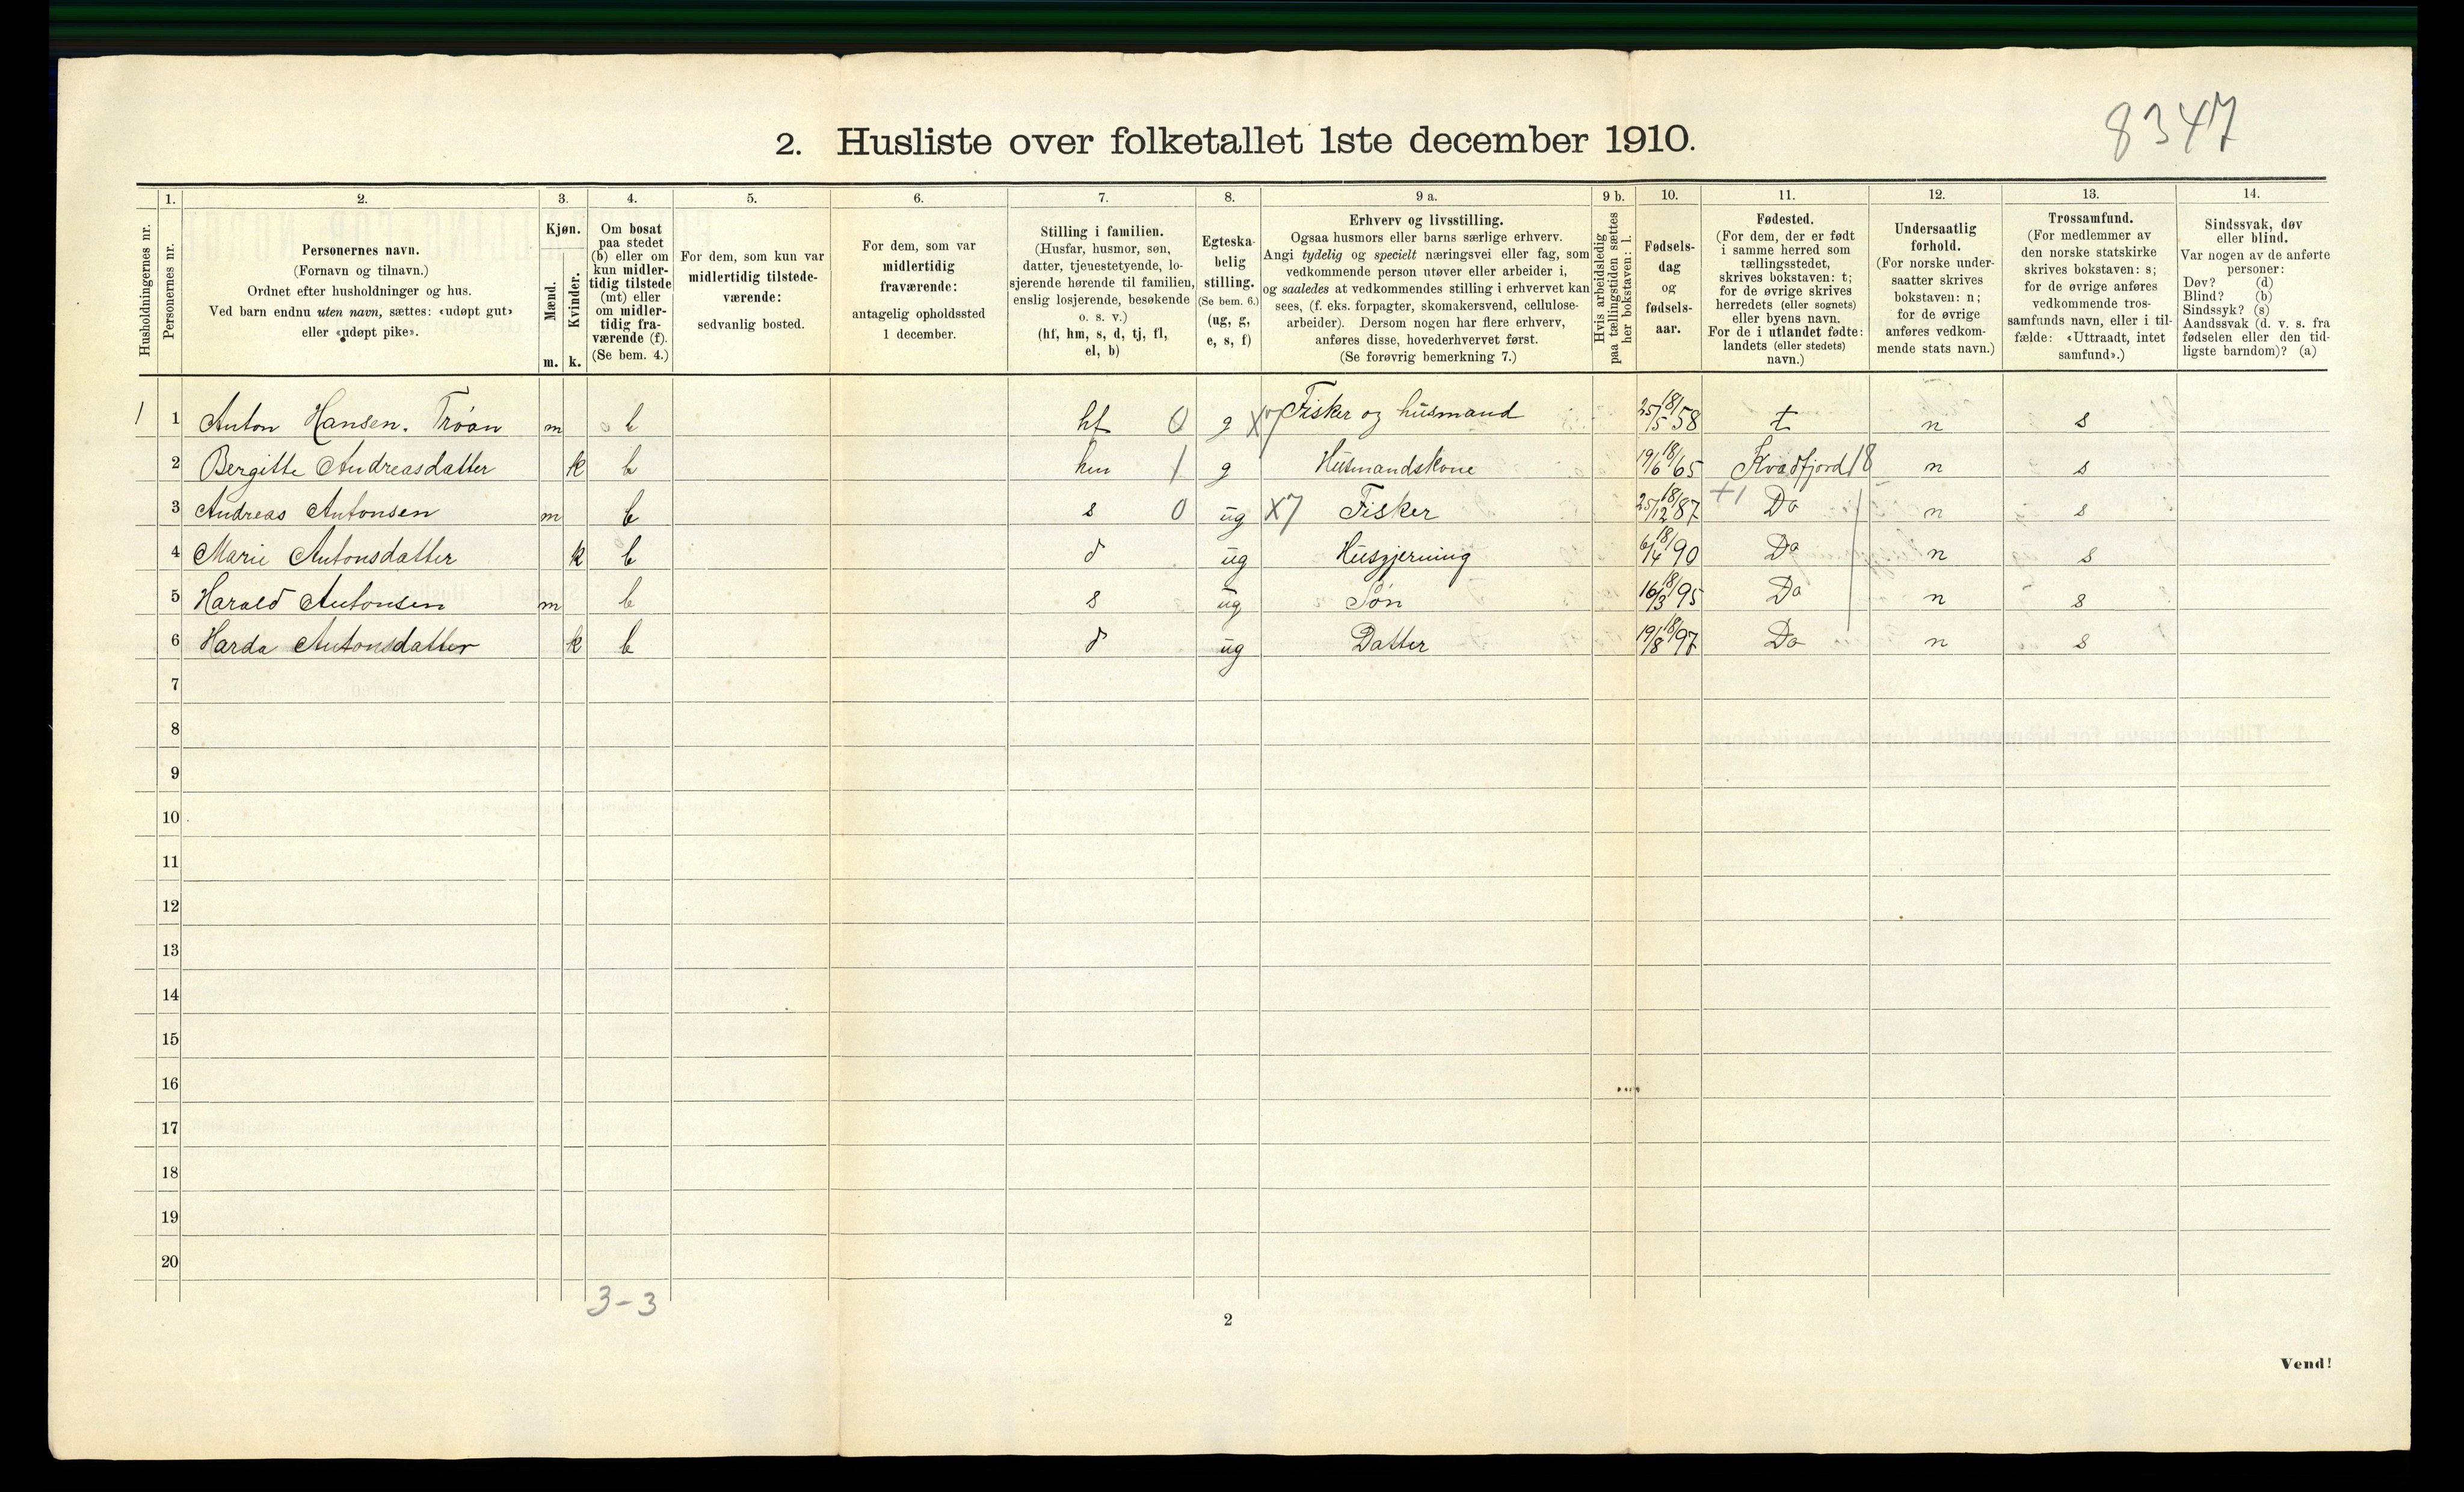 8347
2. Husliste over folketallet 1ste december 1910.
Husholdningernes nr.
1.
Personernes nr.
2.
Personernes navn.
(Fornavn og tilnavn.)
Ordnet efter husholdninger og hus.
Ved barn endnu uten navn, sættes: «udøpt gut»
eller «udøpt pike».
3.
Kjøn.
Mænd.
m.
Kvinder.
k.
4.
Om bosat
paa stedet
(b) eller om
kun midler-
tidig tilstede
(mt) eller
om midler-
tidig fra-
værende (f).
(Se bem. 4.)
5.
For dem, som kun var
midlertidig tilstede-
værende:
sedvanlig bosted.
6.
For dem, som var
midlertidig
fraværende:
antagelig opholdssted
1 december.
7.
Stilling i familien.
(Husfar, husmor, søn,
datter, tjenestetyende, lo-
sjerende hørende til familien,
enslig losjerende, besøkende
o. s. v.)
(hf, hm, s, d, tj, fl,
el, b)
8.
Egteska-
belig
stilling.
(Se bem. 6.)
(ug, g,
e, s, f)
9 a.
Erhverv og livsstilling.
Ogsaa husmors eller barns særlige erhverv.
Angi tydelig og specielt næringsvei eller fag, som
vedkommende person utøver eller arbeider i,
og saaledes at vedkommendes stilling i erhvervet kan
sees, (f. eks. forpagter, skomakersvend, cellulose-
arbeider). Dersom nogen har flere erhverv,
anføres disse, hovederhvervet først.
(Se forøvrig bemerkning 7.)
9 b.
Hvis arbeidsledig
paa tællingstiden sættes
her bokstaven: l.
10.
Fødsels-
dag
og
fødsels-
aar.
11.
Fødested.
(For dem, der er født
i samme herred som
tællingsstedet,
skrives bokstaven: t;
for de øvrige skrives
herredets (eller sognets)
eller byens navn.
For de i utlandet fødte:
landets (eller stedets)
navn.)
12.
Undersaatlig
forhold.
(For norske under-
saatter skrives
bokstaven: n;
for de øvrige
anføres vedkom-
mende stats navn.)
13.
Trossamfund.
(For medlemmer av
den norske statskirke
skrives bokstaven: s;
for de øvrige anføres
vedkommende tros-
samfunds navn, eller i til-
fælde: «Uttraadt, intet
samfund».)
14.
Sindssvak, døv
eller blind.
Var nogen av de anførte
personer:
Døv? (d)
Blind? (b)
Sindssyk? (s)
Aandssvak (d. v. s. fra
fødselen eller den tid-
ligste barndom)? (a)
1 1 Anton Hansen. Trøan m b hf 0 g X7 Fisker og husmand 25/5 18/58 t n s
2 Bergitte Andreasdatter k b hm 1 g Husmandskone 19/6 18/65 Kvædfjord 18 n s
3 Andreas Antonsen m b s 0 ug X7 Fisker 25/12 18/87 +1 Do n s
4 Marie Antonsdatter k b d ug Husgjerning 6/4 18/90 Do n s
5 Harald Antonsen m b s ug Søn 16/3 18/95 Do n s
6 Harda Antonsdatter k b d ug Datter 19/8 18/97 Do n s
7
8
9
10
11
12
13
14
15
16
17
18
19
20
3-3
2
Vend!